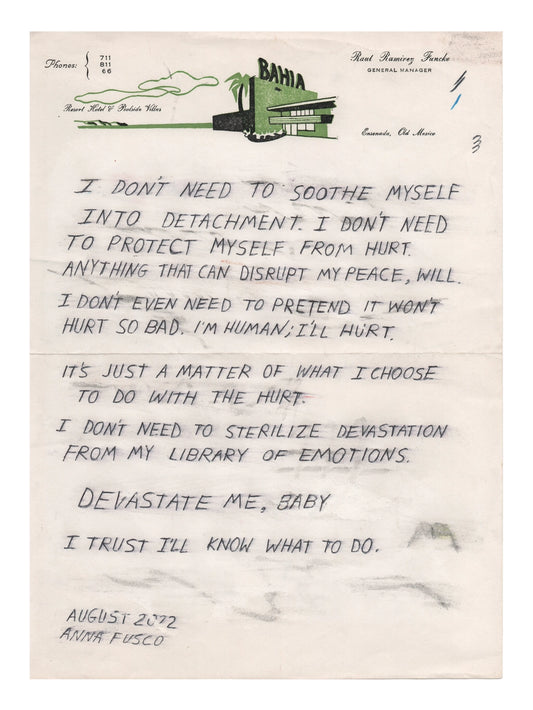 Phones: { 711
811
66
BAHIA
Resort Hotel & Poolside Villas
Raul Ramirez Funcke
GENERAL MANAGER
Ensenada, Old Mexico
3
I DON'T NEED TO SOOTHE MYSELF
INTO DETACHMENT. I DON'T NEED
TO PROTECT MYSELF FROM HURT.
ANYTHING THAT CAN DISRUPT MY PEACE, WILL.
I DON'T EVEN NEED TO PRETEND IT WON'T
HURT SO BAD. I'M HUMAN; I'LL HURT.
IT'S JUST A MATTER OF WHAT I CHOOSE
TO DO WITH THE HURT.
I DON'T NEED TO STERILIZE DEVASTATION
FROM MY LIBRARY OF EMOTIONS.
DEVASTATE ME, BABY
I TRUST I'LL KNOW WHAT TO DO.
AUGUST 2022
ANNA FUSCO